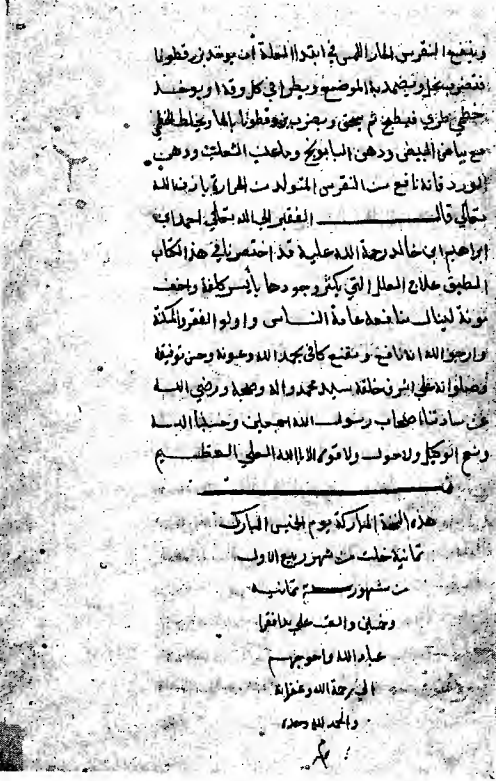 وينفع النقرس الحار اللمس في ابتدا العلة أن يوخذ بزر قطونا
فتضرب بخل ويضمد به الموضع ويطرا في كل وقت او يوخذ
خطمي طري فيطبخ ثم يسحق ويضرب ببزر قطونا الحار ويخلط الخطمي
مع بياض البيض ودهن البابونج وما عنب الثعلب ودهن
الورد فانه نافع من النقرس المتولد من الحرارة باذن الله
تعالي قال الفقير الي الله تعالي احمد ابن
ابراهيم ابن خالد رحمة الله عليه قد اختصرنا في هذا الكتاب
الطبي علاج العلل التي يكثر وجودها بأيسر كلفة واخف
مونة لينال منافعه عامة النـاس واولو الفقر والمسكنة
وارجو الله انه نافع ومقنع كافي بحمد الله وعونه وحسن توفيقه
وصلواته علي اشرف خلقه سيد محمد واله وصحبه ورضي الله
عن سادتنا اصحاب رسول الله اجمعين وحسبنا الله
ونعم الوكيل ولا حول ولا قوة الا بالله العلي العظيم
هذه النسخة المباركة يوم الخميس المبارك
ثمانية خلت من شهر ربيع الاول
من شهور سنة ثمانية
وخمسين والف علي يد افقر
عباد الله واحوجهم
الي رحمة الله وغفرانه
والحمد لله وحده